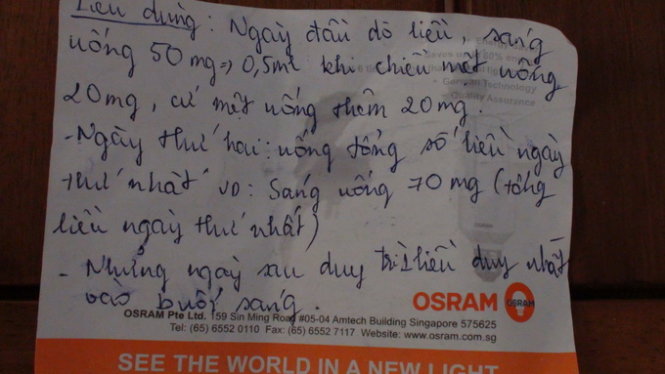 Liều dùng: Ngày đầu dò liều, sáng
uống 50 mg => 0,5ml khi chiều mệt uống
20mg, cứ mệt uống thêm 20mg.
- Ngày thứ hai: uống tổng số liều ngày
thứ nhất VD: Sáng uống 70 mg (tổng
liều ngày thứ nhất)
- Những ngày sau duy trì liều duy nhất
vào buổi sáng.
Technology
Quality Assurance
OSRAM
OSRAM
OSRAM
OSRAM Pte Ltd. 159 Sin Ming Road #05-04 Amtech Building Singapore 575625
Tel: (65) 6552 0110 Fax: (65) 6552 7117 Website: www.osram.com.sg
SEE THE WORLD IN A NEW LIGHT